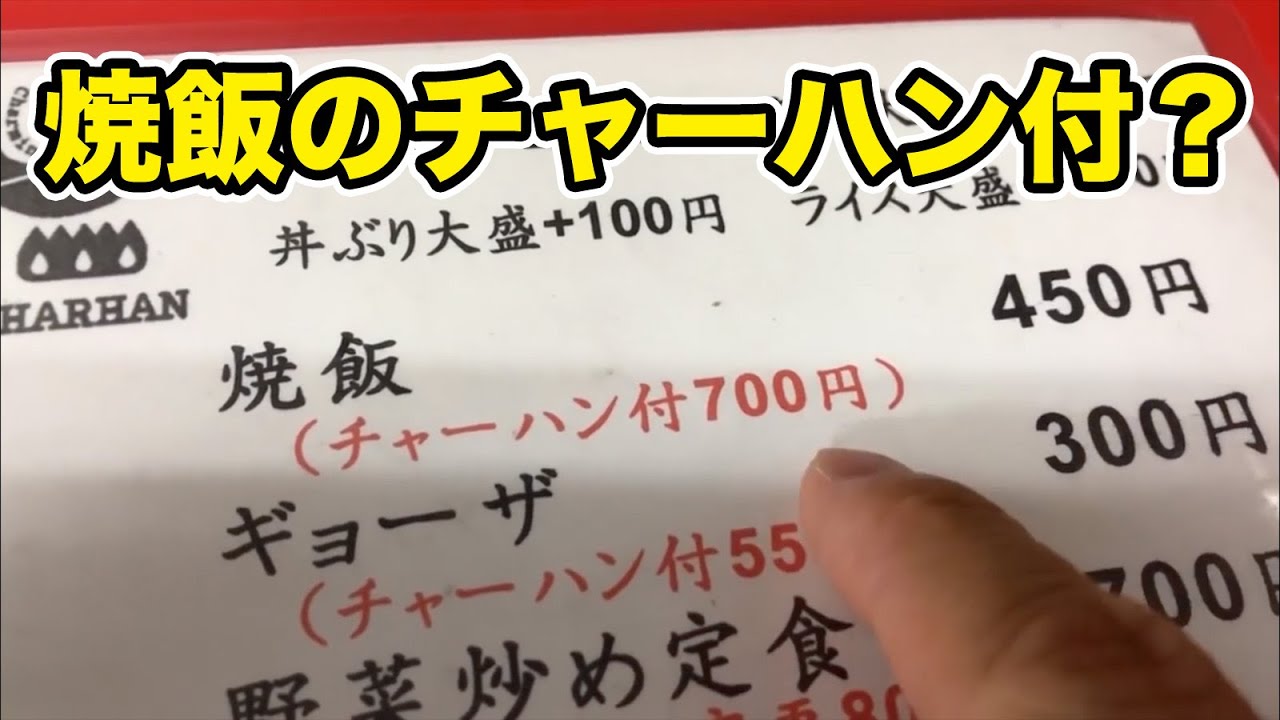 焼飯のチャーハン付？
丼ぶり大盛+100円 ライス大盛
HARHAN
焼飯 450円
（チャーハン付700円）
ギョーザ 300円
（チャーハン付55
野菜炒め定食 700円
80